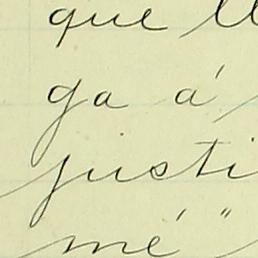 que ll
ga á
justi
mé"